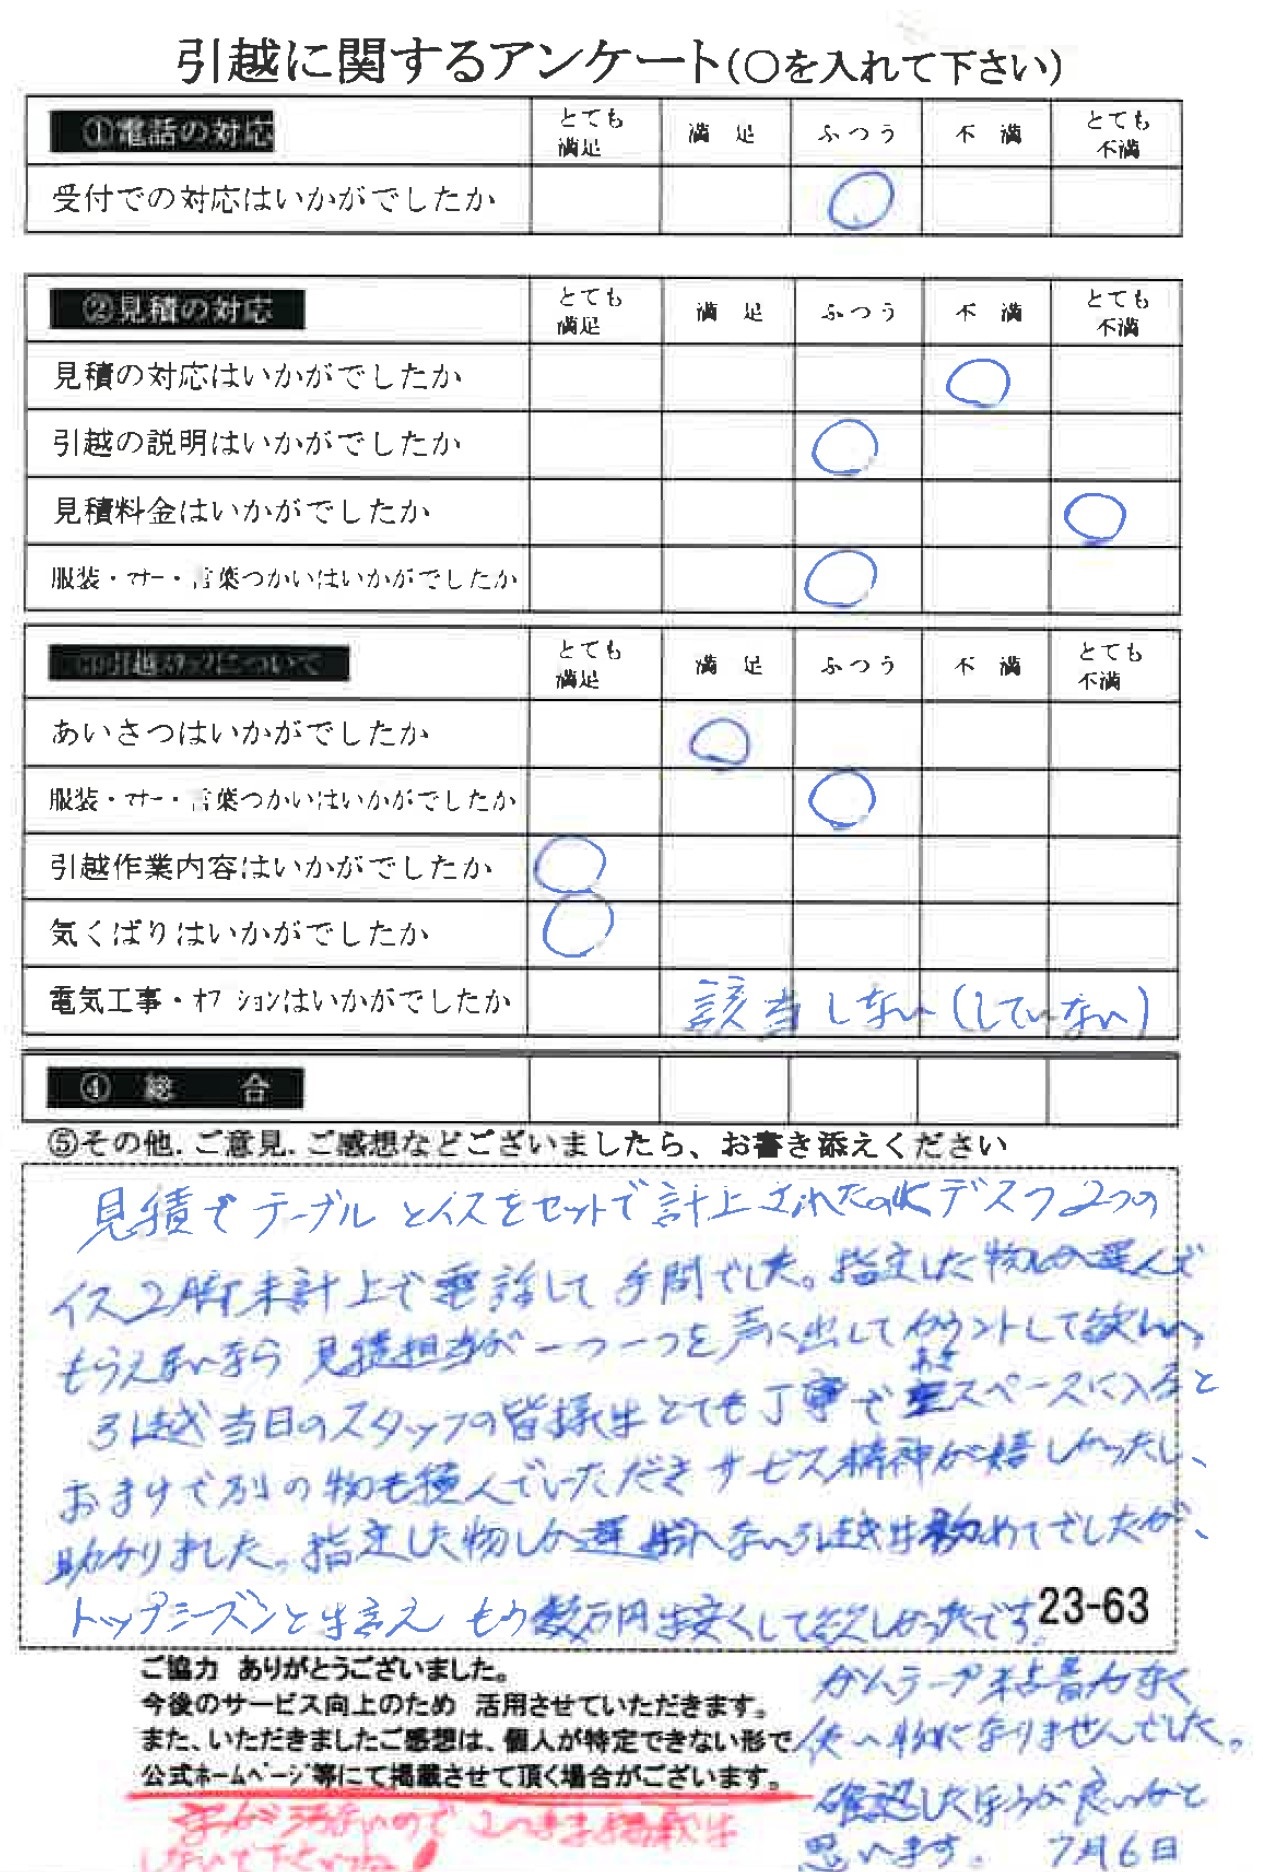 引越に関するアンケート(〇を入れて下さい)
①電話の対応 とても満足 満足 ふつう 不満 とても不満
受付での対応はいかがでしたか
②見積の対応 とても満足 満足 ふつう 不満 とても不満
見積の対応はいかがでしたか
引越の説明はいかがでしたか
見積料金はいかがでしたか
服装・マナー・言葉つかいはいかがでしたか
③引越スタッフについて とても満足 満足 ふつう 不満 とても不満
あいさつはいかがでしたか
服装・マナー・言葉つかいはいかがでしたか
引越作業内容はいかがでしたか
気くばりはいかがでしたか
電気工事・オプションはいかがでしたか 該当しない(していない)
④総合
⑤その他.ご意見.ご感想などございましたら、お書き添えください
見積でテーブルとイスをセットで計上されたのにデスク2つの
イス2脚未計上で電話して手間でした。指定した物しか運んで
もらえないなら見積担当が一つ一つを声に出してカウントして欲しい。
引越当日のスタッフの皆様はとても丁寧で空スペースに入ると
おまけで別の物も積んでいただきサービス精神が嬉しかったし、
助かりました。指定した物しか運ばない引越は初めてでしたが、
トップシーズンとは言え もう数万円は安くして欲しかったです。
23-63
ご協力 ありがとうございました。
今後のサービス向上のため 活用させていただきます。
また、いただきましたご感想は、個人が特定できない形で
公式ホームページ等にて掲載させて頂く場合がございます。
ガムテープ粘着力なく
使い物になりませんでした。
確認したほうが良いかと
思います。 7月6日
字が汚ないので このまま掲載は
しないで下さいね!